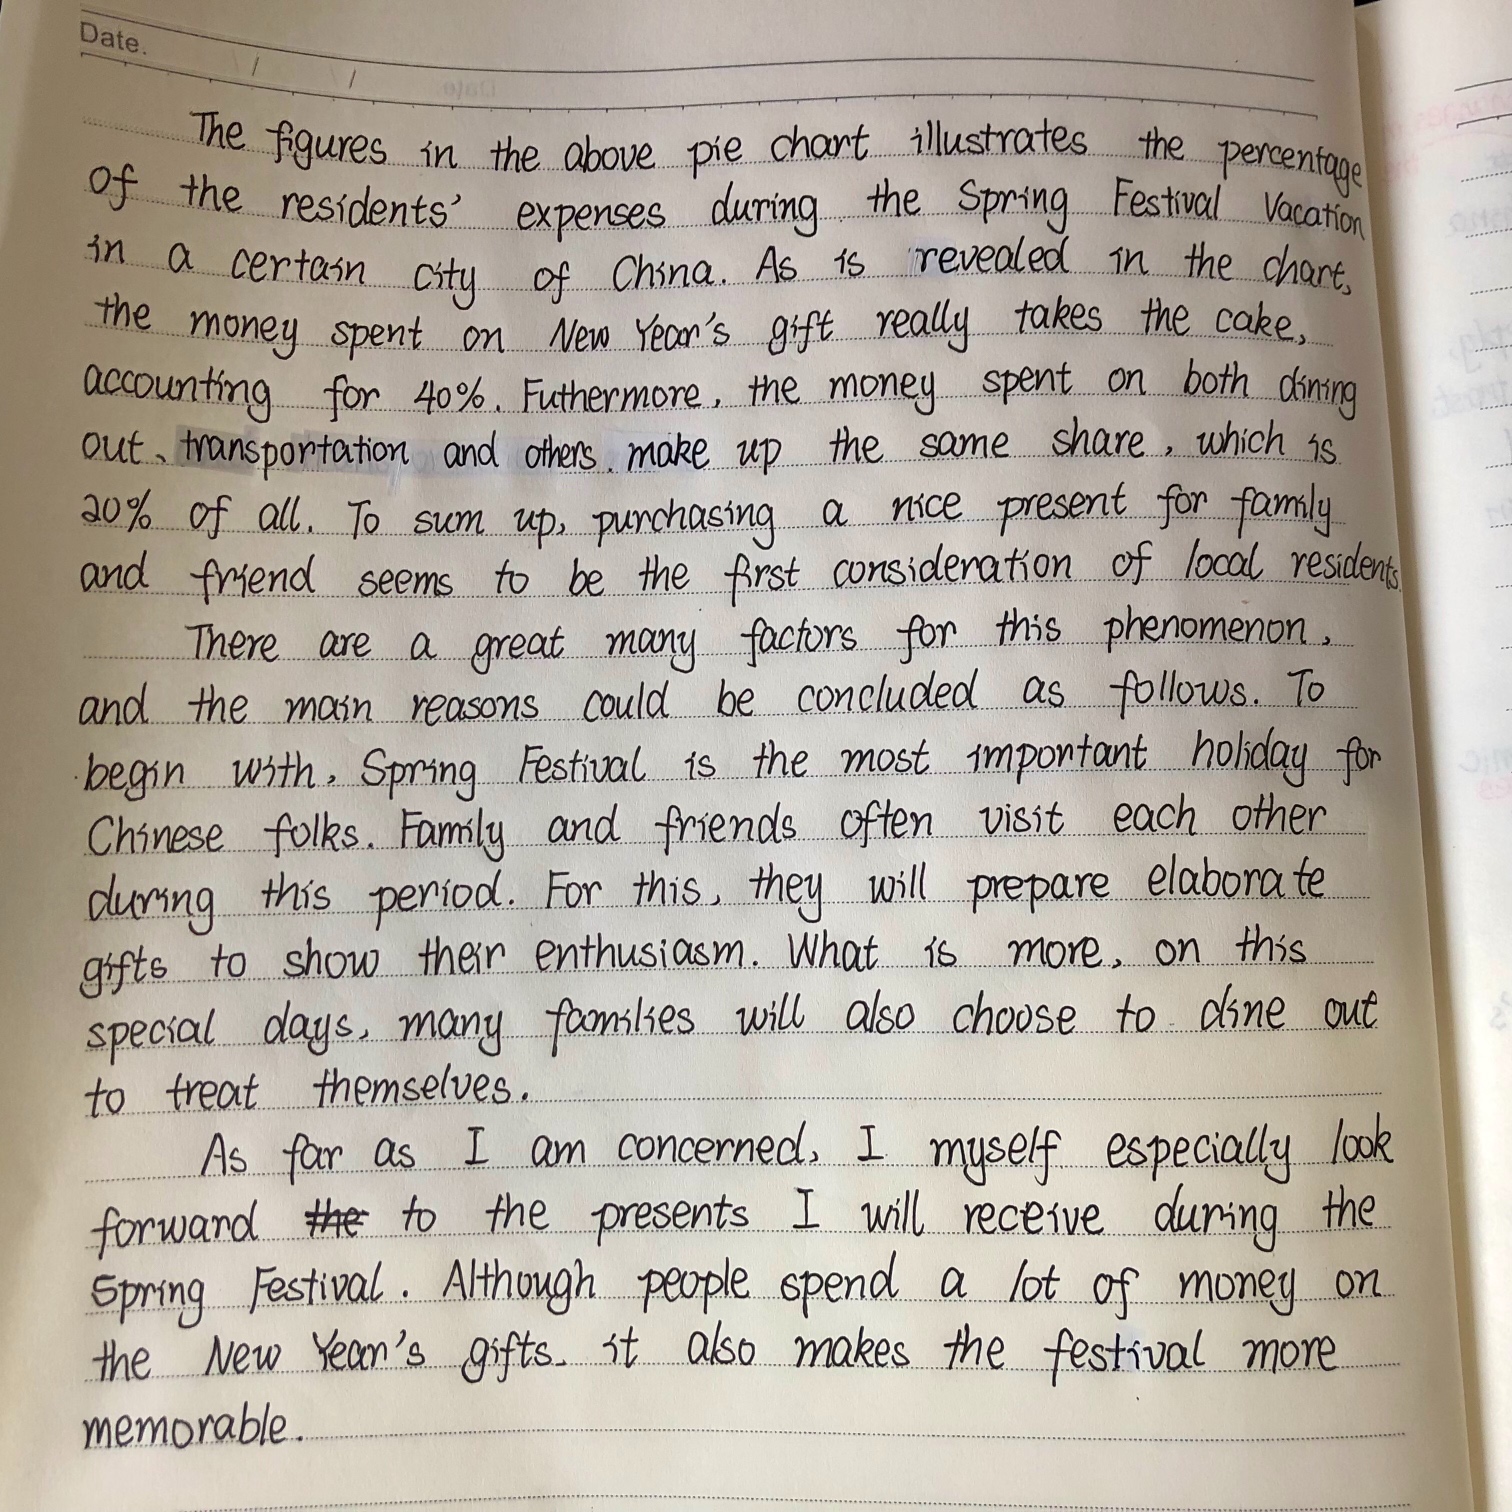 Date.
The figures in the above pie chart illustrates the percentage
of the residents' expenses during the Spring Festival Vacation
in a certain city of China. As is revealed in the chart,
the money spent on New Year's gift really takes the cake,
accounting for 40%. Futhermore, the money spent on both dining
out、transportation and others. make up the same share, which is
20% of all. To sum up, purchasing a nice present for family
and friend seems to be the first consideration of local residents.
There are a great many factors for this phenomenon,
and the main reasons could be concluded as follows. To
begin with, Spring Festival is the most important holiday for
Chinese folks. Family and friends often visit each other
during this period. For this, they will prepare elaborate
gifts to show their enthusiasm. What is more, on this
special days, many families will also choose to dine out
to treat themselves.
As far as I am concerned, I myself especially look
forward the to the presents I will receive during the
Spring Festival. Although people spend a lot of money on
the New Year's gifts. it also makes the festival more
memorable.